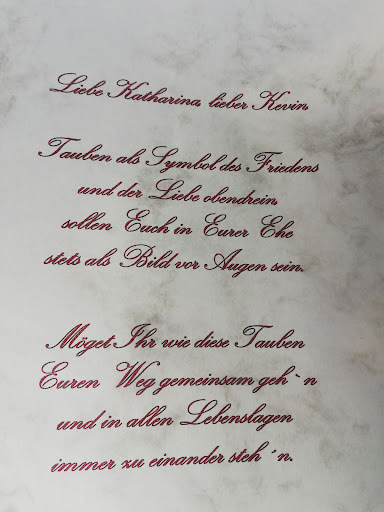 Liebe Katharina, lieber Kevin,
Tauben als Symbol des Friedens
und der Liebe obendrein,
sollen Euch in Eurer Ehe
stets als Bild vor Augen sein.
Möget Ihr wie diese Tauben
Euren Weg gemeinsam geh´n
und in allen Lebenslagen
immer zu einander steh´n.